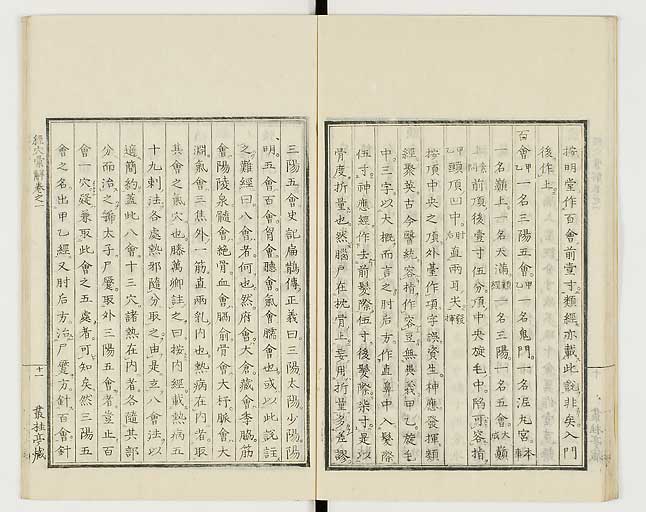 按明堂作百會前壹寸類經亦載此說非矣入門
後作上
百會 甲乙 一名三陽五會 甲乙 一名鬼門 一名泥丸宮 本事
一名巔上 一名天滿 一名三陽 一名五會 大成 巔
前頂後壹寸伍分頂中央旋毛中陷可容指
甲乙 頭頂凹中 肘后 直兩耳尖 發揮
按頂中央之頂外臺作項字誤資生神應發揮類
經聚英古今醫統容指作容豆無異義甲乙旋毛
中三字以大概而言之肘后方作直鼻中入髮際
伍寸神應經作去前髮際伍寸後髮際柒寸是以
骨度折量也然腦戶在枕骨上妄用折量多差謬
三陽五會史記扁鵲傳正義曰三陽太陽少陽陽
明五會百會胷會聽會氣會臑會也或以此說註
之難經曰八會者何也然府會大倉藏會季脇筋
會陽陵泉髓會絕骨血會膈俞骨會大杼脈會大
淵氣會三焦外一筋直兩乳內也熱病在內者取
其會之氣穴也滕萬卿註之曰按內經載熱病五
十九刺法各處熱邪隨分取之由是立八會法以
邇簡約蓋此八會十三穴諸熱在內者各隨其部
分而治之號太子尸蹷取外三陽五會者豈止百
會一穴疑兼取此會之五處者可知矣然三陽五
會之名出甲乙經又肘后方治尸蹷方針百會針
經穴彙解卷之一
十一
叢桂亭藏